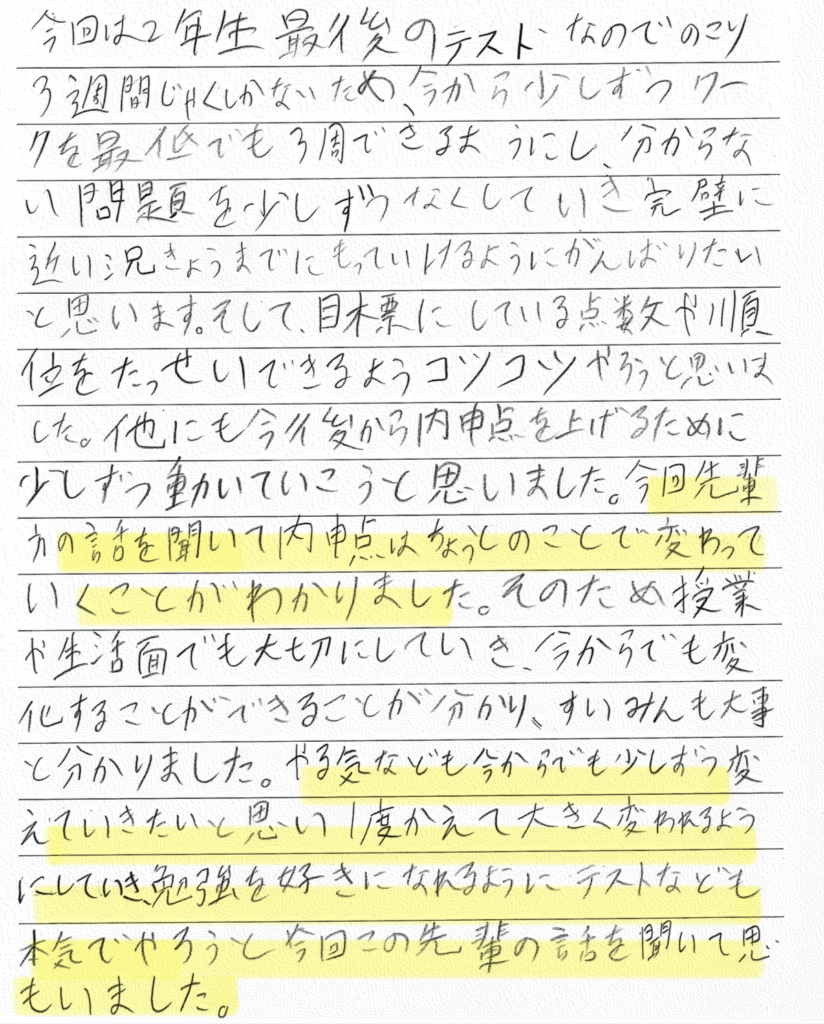 今回は2年生最後のテストなのでのこり
3週間じゃくしかないため、今から少しずつワー
クを最低でも3周できるようにし、分からな
い問題を少しずつなくしていき完璧に
近い況きょうまでにもっていけるようにがんばりたい
と思います。そして、目標にしている点数や順
位をたっせいできるようコツコツやろうと思いま
した。他にも今後から内申点を上げるために
少しずつ動いていこうと思いました。今回先輩
方の話を聞いて内申点はちょっとのことで変わって
いくことがわかりました。そのため授業
や生活面でも大切にしていき、今からでも変
化することができることが分かり、すいみんも大事
と分かりました。やる気なども今からでも少しずつ変
えていきたいと思い1度かえて大きく変われるよう
にしていき、勉強を好きになれるようにテストなども
本気でやろうと今回この先輩の話を聞いて思
もいました。